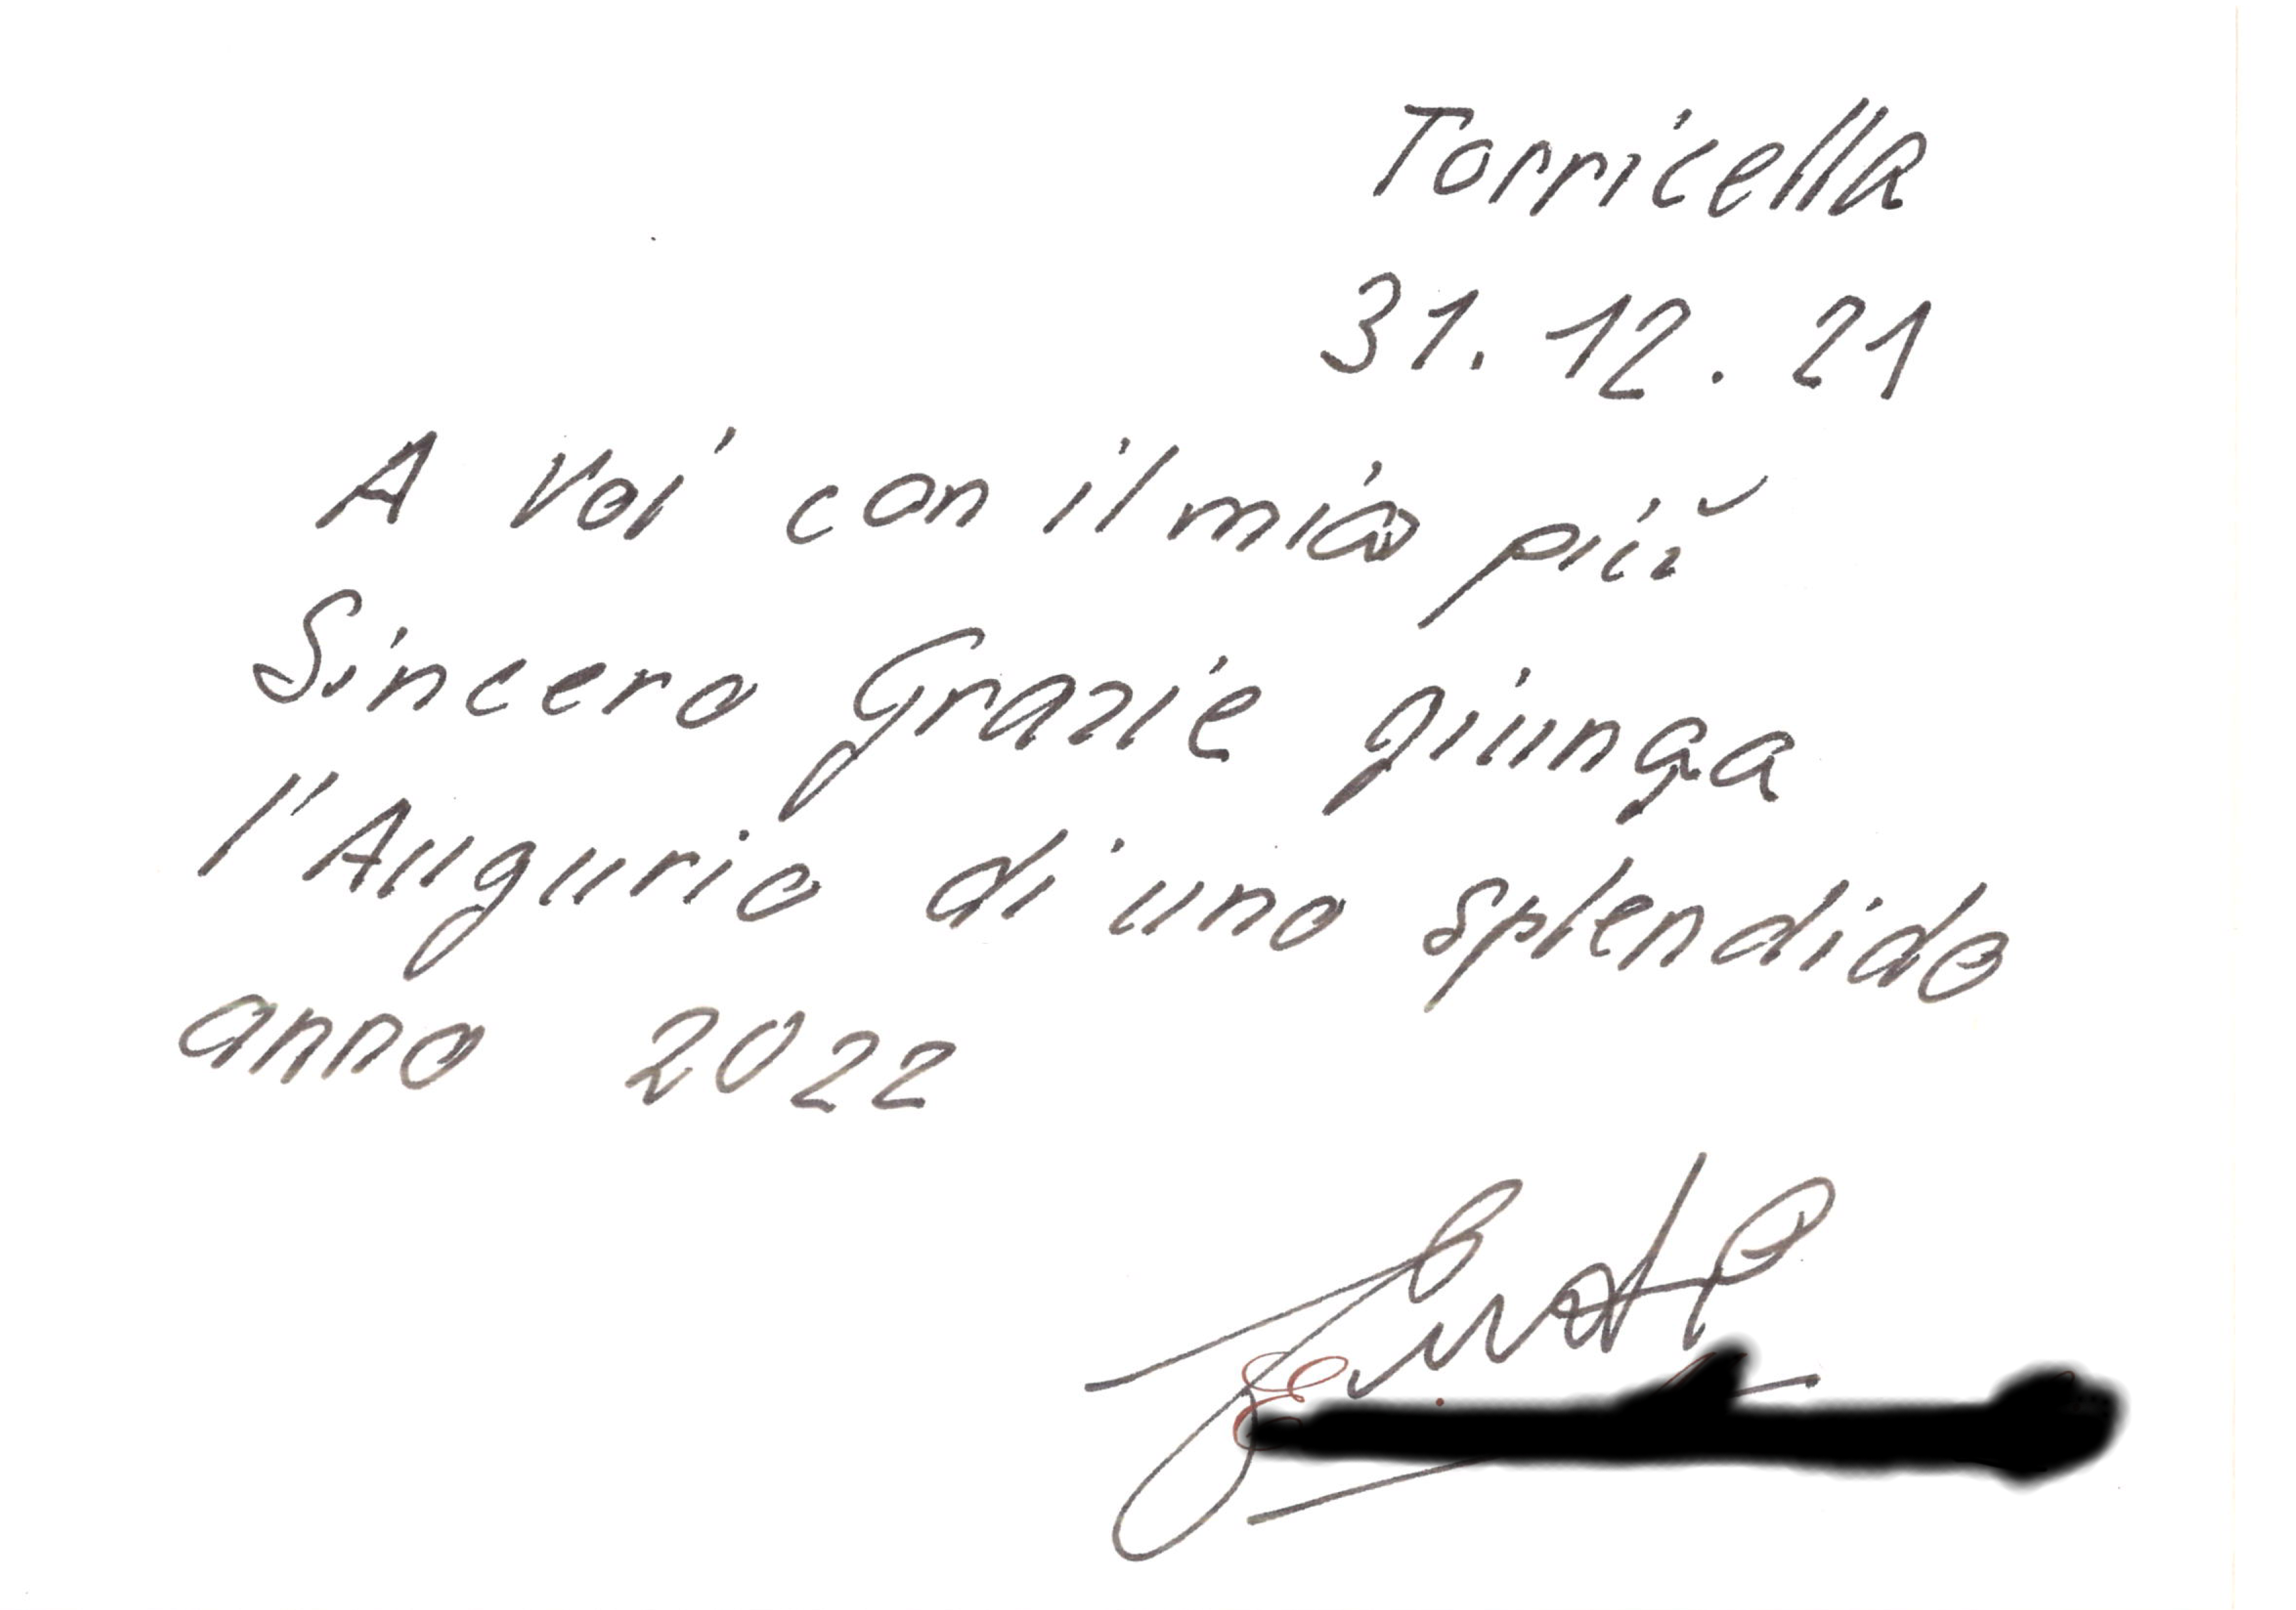 Torricella
31.12.21
A Voi con il mio più
Sincero Grazie giunga
l'Augurio di uno splendido
anno 2022